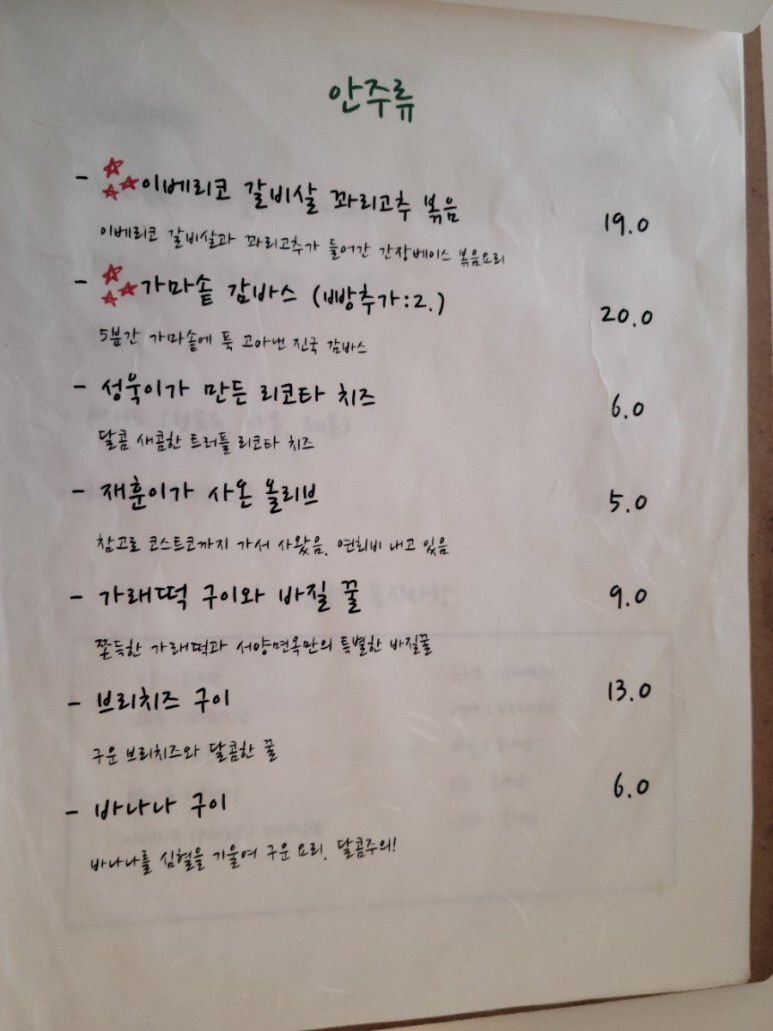 안주류
- 이베리코 갈비살 꽈리고추 볶음
19.0
이베리코 갈비살과 꽈리고추가 들어간 간장베이스 볶음요리
- 가마솥 감바스 (빵추가:2.)
20.0
5분간 가마솥에 푹 고아낸 진국 감바스
- 성욱이가 만든 리코타 치즈
6.0
달콤 새콤한 트러플 리코타 치즈
- 재훈이가 사온 올리브
5.0
참고로 코스트코까지 가서 사왔음. 연회비 내고 있음
- 가래떡 구이와 바질 꿀
9.0
쫀득한 가래떡과 서양면옥만의 특별한 바질꿀
- 브리치즈 구이
13.0
구운 브리치즈와 달콤한 꿀
- 바나나 구이
6.0
바나나를 심혈을 기울여 구운 요리. 달콤주의!